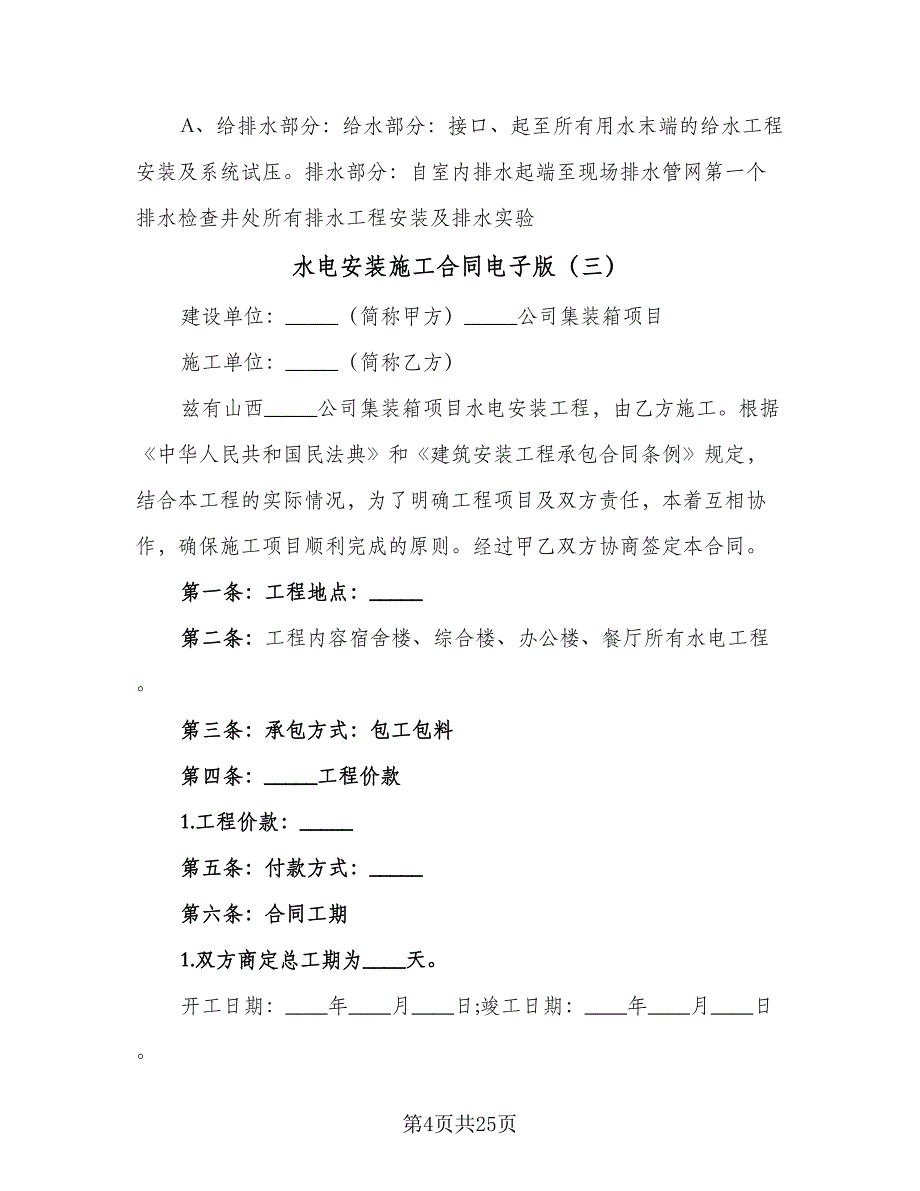 A、给排水部分：给水部分：接口、起至所有用水末端的给水工程
安装及系统试压。排水部分：自室内排水起端至现场排水管网第一个
排水检查井处所有排水工程安装及排水实验
水电安装施工合同电子版（三）
建设单位：_____（简称甲方）_____公司集装箱项目
施工单位：_____（简称乙方）
兹有山西_____公司集装箱项目水电安装工程，由乙方施工。根据
《中华人民共和国民法典》和《建筑安装工程承包合同条例》规定，
结合本工程的实际情况，为了明确工程项目及双方责任，本着互相协
作，确保施工项目顺利完成的原则。经过甲乙双方协商签定本合同。
第一条：工程地点：_____
第二条：工程内容宿舍楼、综合楼、办公楼、餐厅所有水电工程
。
第三条：承包方式：包工包料
第四条：_____工程价款
1.工程价款：_____
第五条：付款方式：_____
第六条：合同工期
1.双方商定总工期为____天。
开工日期：____年____月____日;竣工日期：____年____月____日
。
第4页共25页